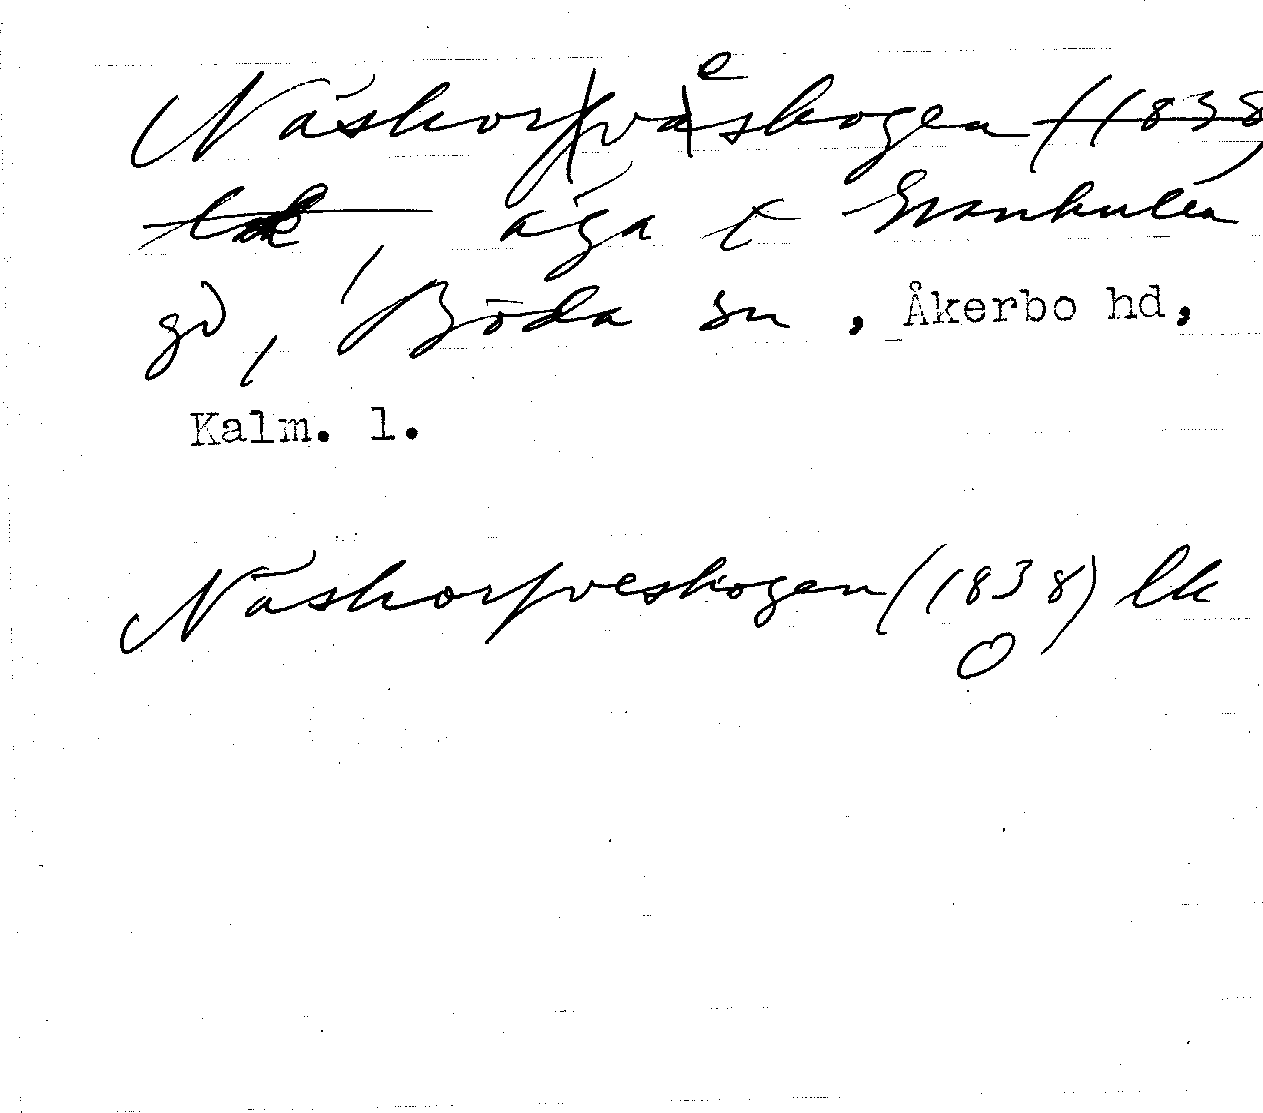 Näskorfvaskogen (1838)
lk, äga t Grankulla
gd, Böda sn, Åkerbo hd,
Kalm. l.
Näskorfveskogen (1838) lk